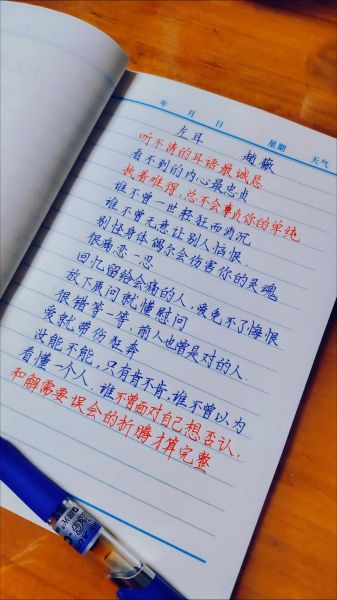 年 月 日 星期 天气
左耳 赵薇
听不清的耳语最诚恳
看不到的内心最忠贞
执着难得,总不会辜负你的单纯
谁不曾一世轻狂而消沉
谁不曾无意让别人恼恨
别怪身体偶尔会伤害你的灵魂
很痛忍一忍
回忆留给会痛的人,爱免不了悔恨
放下质问就懂慰问
很错等一等,前人也曾是对的人.
爱就带伤狂奔
没能不能,只有肯不肯,谁不曾以为
看懂一个人.谁不曾面对自己想否认.
和解需要误会的折腾才算完整